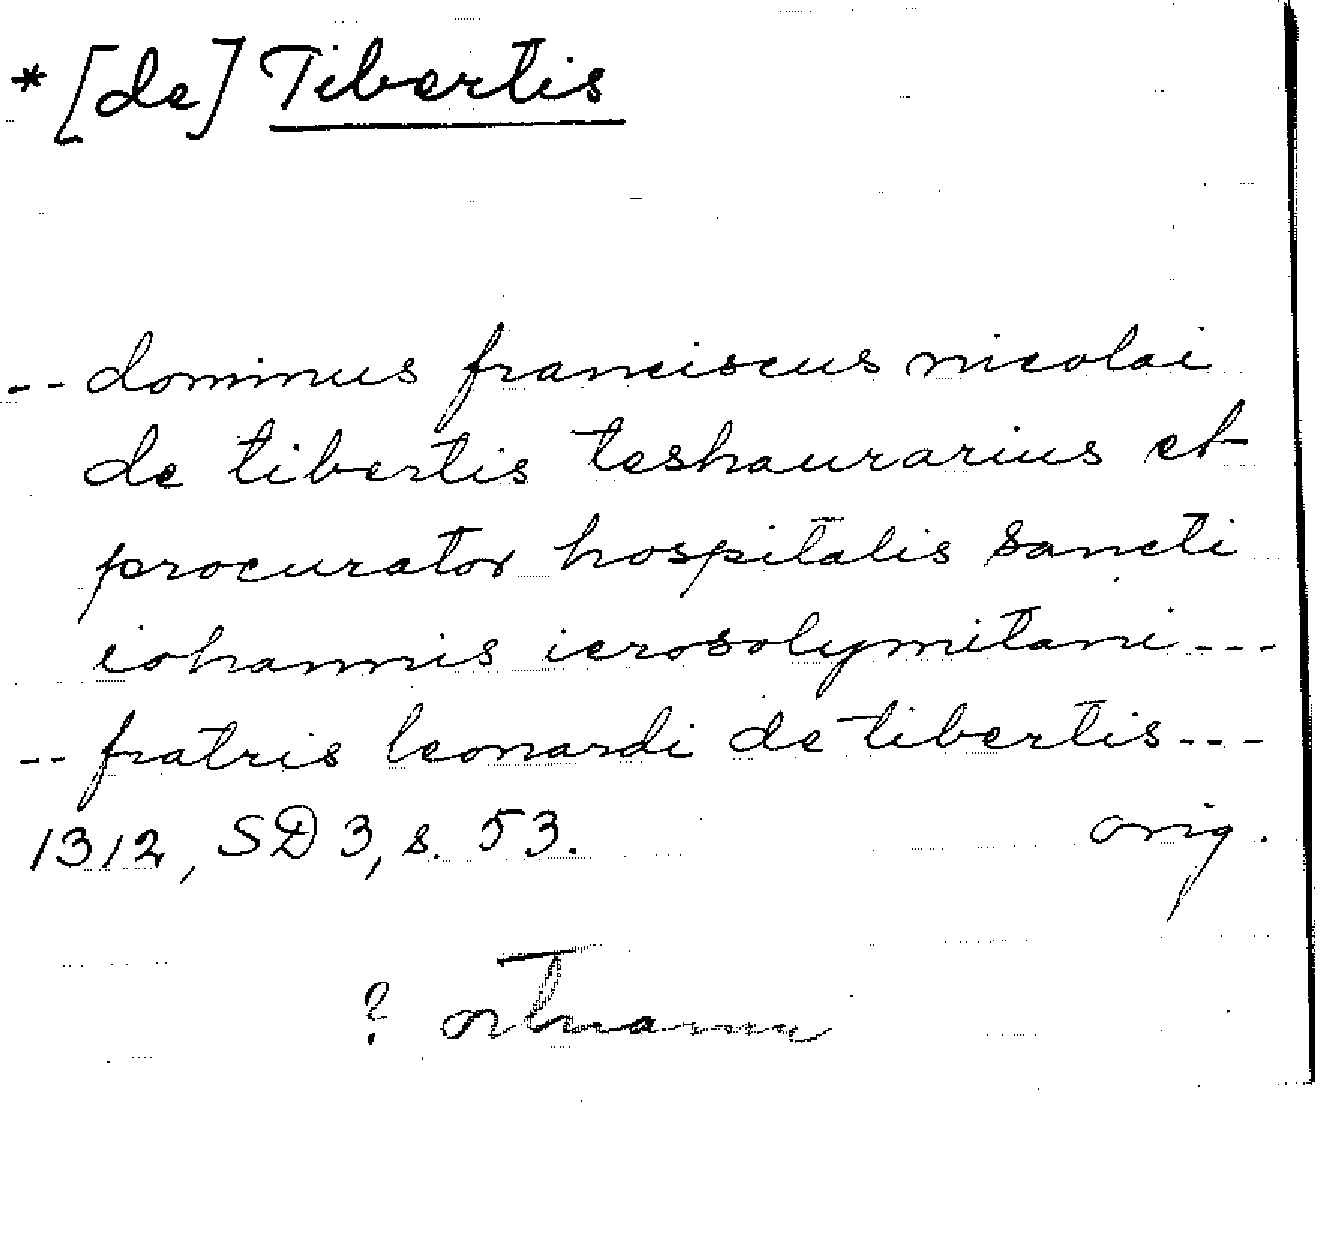 * [de] Tibertis
-- dominus franciscus nicolai
de tibertis teshaurarius et
procurator hospitalis sancti
iohannis ierosolymitani ---
-- fratris leonardi de tibertis ---
1312, SD 3, s. 53. orig.
? ortnamn